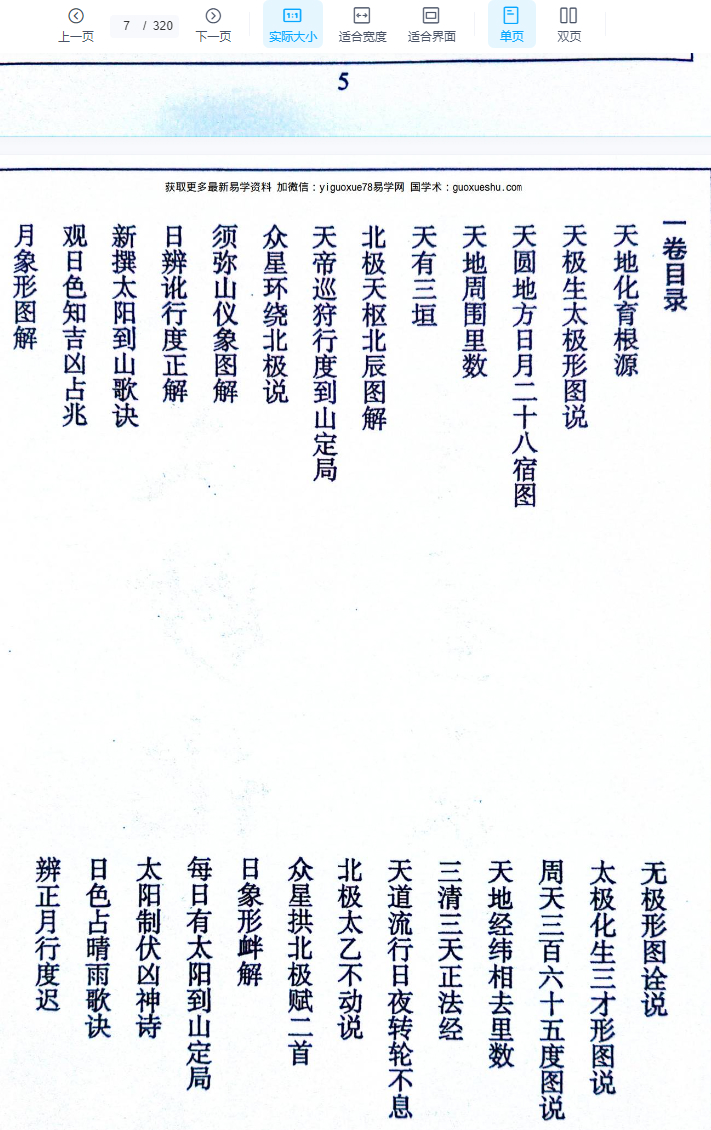 上一页
7 / 320
下一页
实际大小
适合宽度
适合界面
单页
双页
5
获取更多最新易学资料 加微信：yiguoxue78易学网 国学术：guoxueshu.com
一卷目录
天地化育根源
天极生太极形图说
天圆地方日月二十八宿图
天地周围里数
天有三垣
北极天枢北辰图解
天帝巡狩行度到山定局
众星环绕北极说
须弥山仪象图解
日辨讹行度正解
新撰太阳到山歌诀
观日色知吉凶占兆
月象形图解
无极形图诠说
太极化生三才形图说
周天三百六十五度图说
天地经纬相去里数
三清三天正法经
天道流行日夜转轮不息
北极太乙不动说
众星拱北极赋二首
日象形衅解
每日有太阳到山定局
太阳制伏凶神诗
日色占晴雨歌诀
辨正月行度迟